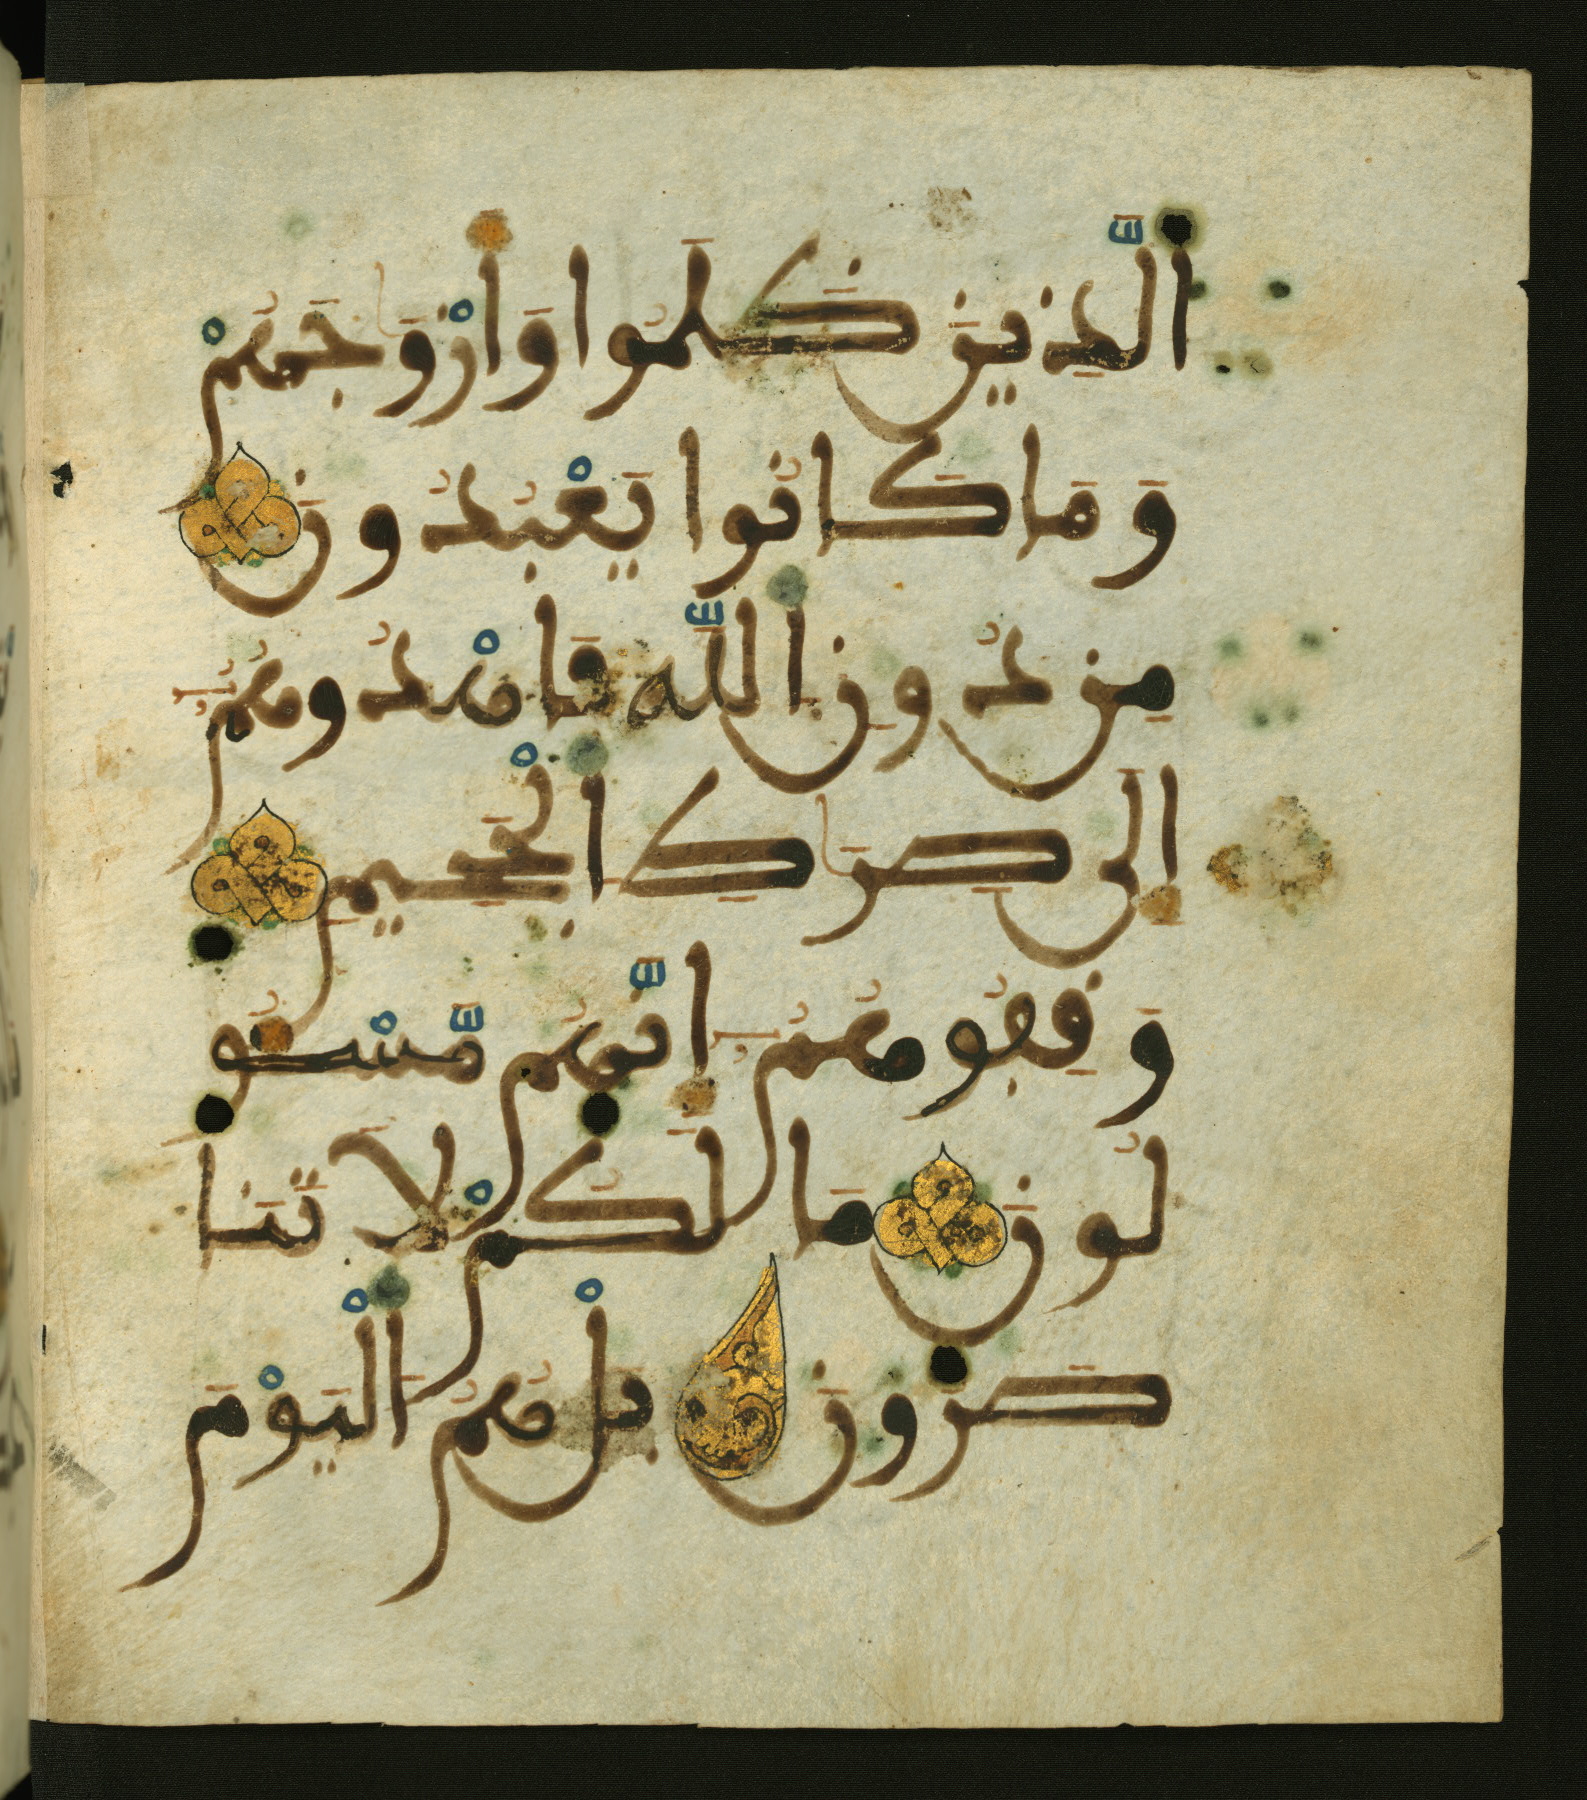 الَّذِينَ ظَلَمُوا وَأَزْوَٰجَهُمْ
وَمَا كَانُوا يَعْبُدُونَ
مِن دُونِ اللَّهِ فَاهْدُوهُمُۥ
إِلَىٰ صِرَٰطِ الْجَحِيمِ
وَقِفُوهُمُۥ إِنَّهُم مَّسْـُٔو
لُونَ مَا لَكُمْ لَا تَنَا
صَرُونَ بَلْ هُمُ الْيَوْمَ